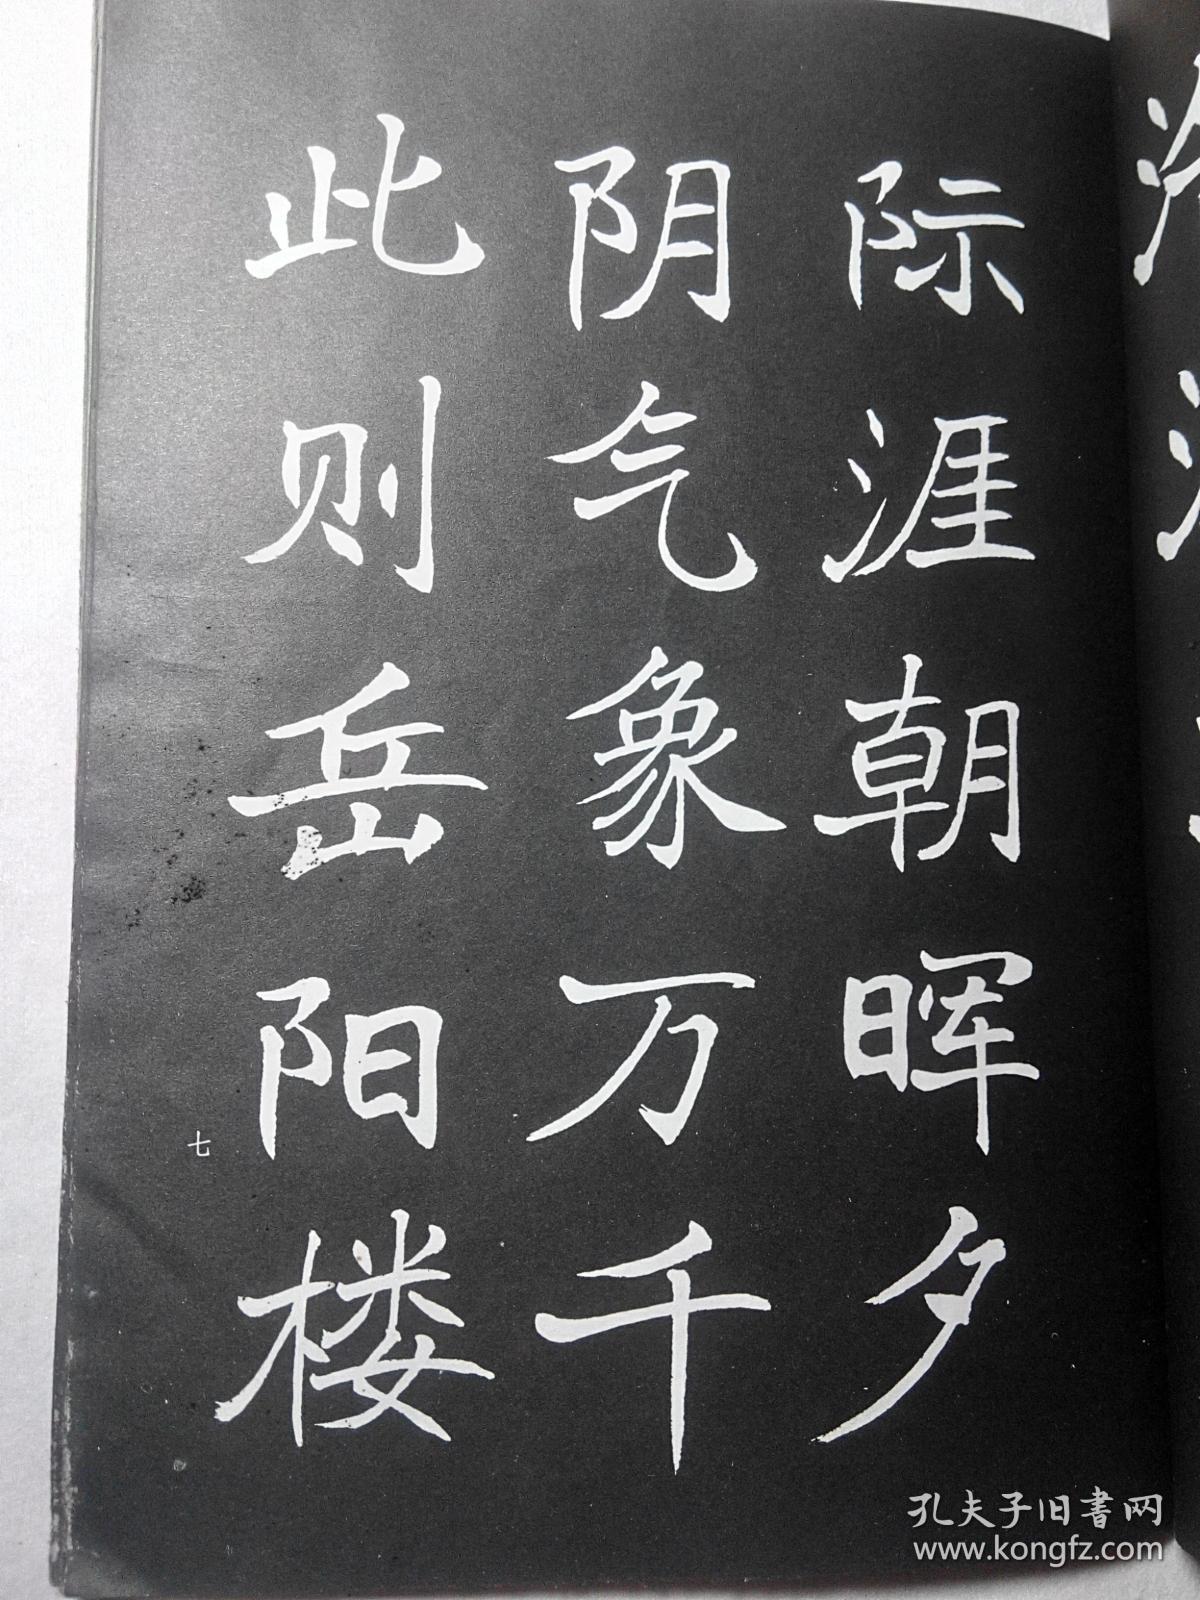 际涯朝晖夕
阴气象万千
此则岳阳楼
七
孔夫子旧書网
www.kongfz.com